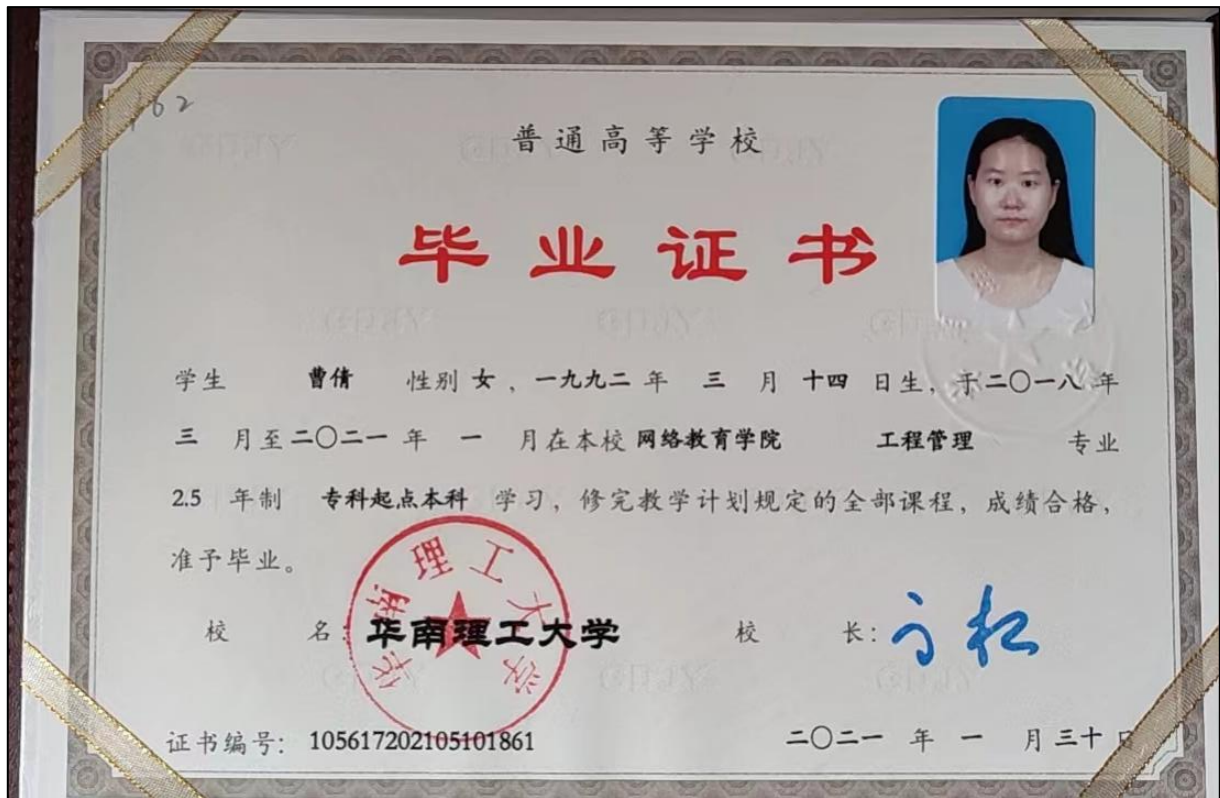 162
普通高等学校
毕业证书
学生 曹倩 性别 女，一九九二 年 三 月 十四 日生，于二〇一八 年
三 月至 二〇二一 年 一 月在本校 网络教育学院 工程管理 专业
2.5 年制 专科起点本科 学习，修完教学计划规定的全部课程，成绩合格，
准予毕业。
校 名：华南理工大学 校 长：
华南理工大学
证书编号：105617202105101861 二〇二一 年 一 月 三十 日